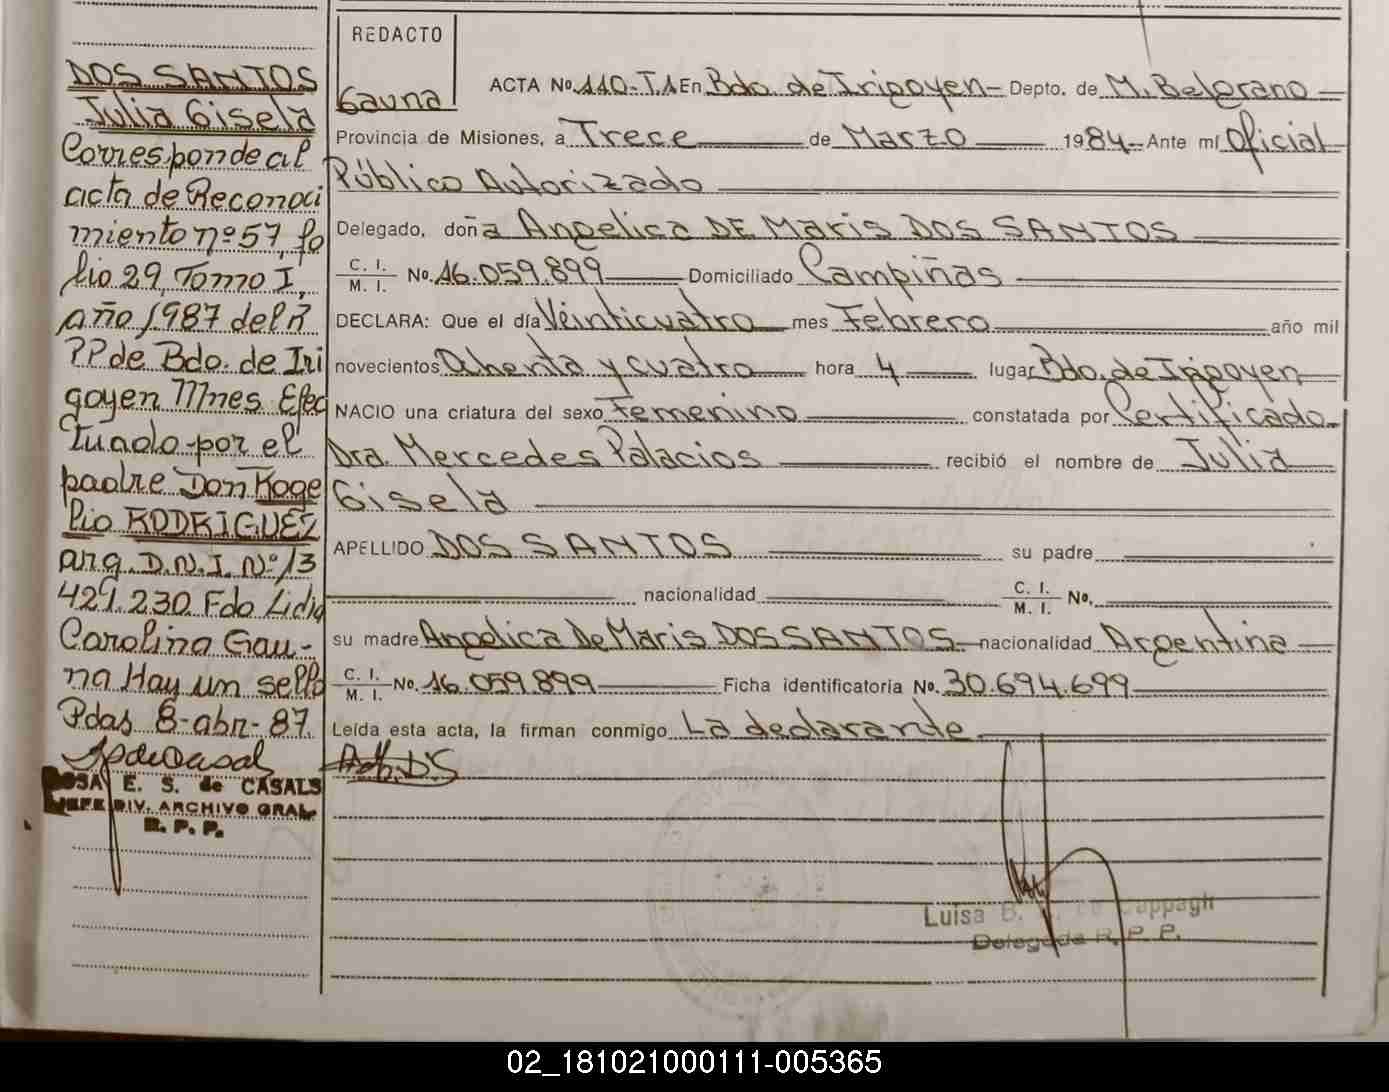 DOS SANTOS
Julia Gisela
Corresponde al
acta de Reconoci
miento nº 57, fo
lio 29, Tomo I,
año 1987 del R
P.P de Bdo. de Iri
goyen Mnes Efec
tuado por el
padre Don Roge
lio RODRIGUEZ
arg. D.N.I. Nº 13
429.230 Fdo Lidia
Carolina Gau-
na Hay un sello
Pdas 8-abr-87.
ROSA E. S. de CASALS
JEFE DIV. ARCHIVO GRAL.
R. P. P.
REDACTO
Gauna
ACTA No. 110-T1 En Bdo. de Irigoyen- Depto. de M. Belgrano
Provincia de Misiones, a Trece de Marzo 1984 Ante mí Oficial
Público Autorizado
Delegado, doña Angelica DE Maris DOS SANTOS
C. I. / M. I. No. 16.059.899 Domiciliado Campiñas
DECLARA: Que el día Veinticuatro mes Febrero año mil
novecientos Ochenta y cuatro hora 4 lugar Bdo. de Irigoyen
NACIO una criatura del sexo Femenino constatada por Certificado
Dra. Mercedes Palacios recibió el nombre de Julia
Gisela
APELLIDO DOS SANTOS su padre
nacionalidad C. I. / M. I. No.
su madre Angelica De Maris DOS SANTOS nacionalidad Argentina
C. I. / M. I. No. 16.059.899 Ficha identificatoria No. 30.694.699
Leída esta acta, la firman conmigo La declarante
Luisa B. de Cappagli
Delegada R. P. P.
02_181021000111-005365